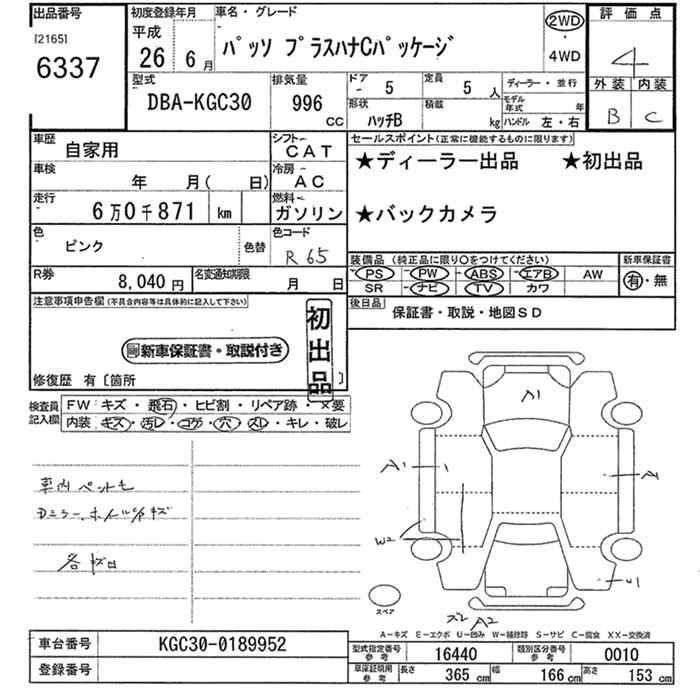 出品番号
[2165]
6337
初度登録年月
平成
26年 6月
車名・グレード
パッソ プラスハナCパッケージ
2WD
・
4WD
評価点
4
外装 内装
B C
型式
DBA-KGC30
排気量
996
CC
ドア
- 5
定員
5 人
ディーラー・並行
形状
ハッチB
積載
kg
モデル年式 年
ハンドル 左・右
車歴
自家用
シフト
CAT
車検
年 月( 日)
冷房
AC
走行
6万0千871 km
燃料
ガソリン
色
ピンク
色替
色コード
R65
R券
8,040円
名変通知期限
月 日
セールスポイント(正常に機能するものに限ります)
★ディーラー出品 ★初出品
★バックカメラ
装備品 (純正品に限り○をつけてください)
PS PW ABS エアB AW
SR ナビ TV カワ
新車保証書
有・無
後日品
保証書・取説・地図SD
注意事項申告欄(不具合内容等は具体的に記入して下さい)
新車保証書・取説付き
初出品
修復歴 有〔箇所 〕
検査員記入欄
FW キズ・飛石・ヒビ割・リペア跡・×要
内装 キズ・汚レ・コゲ・穴・スレ・キレ・破レ
車内ペットモ
Dミラー、ホイルキャキズ
各キズ
A1
A1
A1
W2
U1
ズレ A2
スペア
A−キズ E−エクボ U−凹み W−補修跡 S−サビ C−腐食 XX−交換済
車台番号
KGC30-0189952
登録番号
型式指定番号
参考
16440
類別区分番号
参考
0010
車庫証明用
参考
長さ 365 cm
幅 166 cm
高さ 153 cm